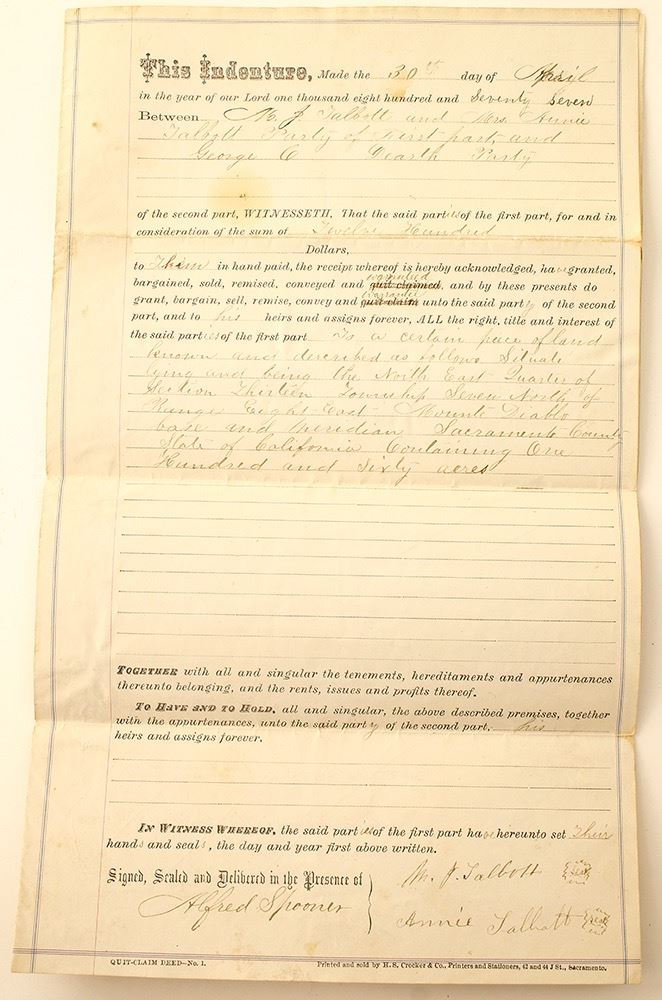 This Indenture, Made the 30th day of April
in the year of our Lord one thousand eight hundred and Seventy Seven
Between M. J. Talbott and Mrs. Annie
Talbott Party of First part, and
George C Dearth Party
of the second part, WITNESSETH, That the said parties of the first part, for and in
consideration of the sum of Twelve Hundred
Dollars,
to Them in hand paid, the receipt whereof is hereby acknowledged, have granted,
warranted
bargained, sold, remised, conveyed and quit-claimed, and by these presents do
warranted
grant, bargain, sell, remise, convey and quit-claim unto the said party of the second
part, and to his heirs and assigns forever, ALL the right, title and interest of
the said parties of the first part To a certain peace of land
Known and described as follows Situate
lying and being the North East Quarter of
Section Thirteen Township Seven North of
Range Eight East Mounte Diablo
base and Meridian Sacramento County
State of California Containing One
Hundred and Sixty acres
TOGETHER with all and singular the tenements, hereditaments and appurtenances
thereunto belonging, and the rents, issues and profits thereof.
TO HAVE AND TO HOLD, all and singular, the above described premises, together
with the appurtenances, unto the said party of the second part, his
heirs and assigns forever.
IN WITNESS WHEREOF, the said parties of the first part have hereunto set Their
hands and seals, the day and year first above written.
Signed, Sealed and Delivered in the Presence of
M. J. Talbott
Alfred Spooner
Annie Talbott
QUIT-CLAIM DEED—No. 1.
Printed and sold by H. S. Crocker & Co., Printers and Stationers, 42 and 44 J St., Sacramento.